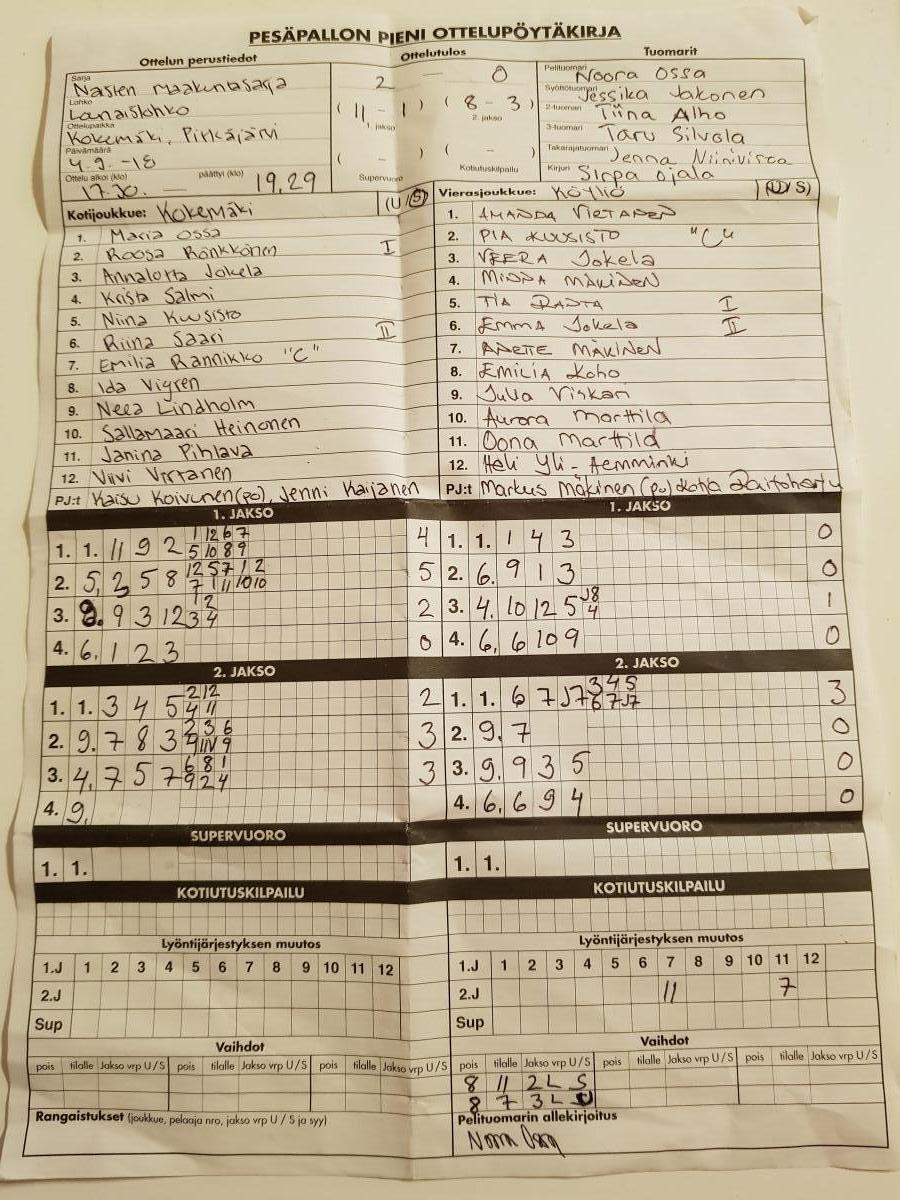 PESÄPALLON PIENI OTTELUPÖYTÄKIRJA
Ottelun perustiedot Ottelutulos Tuomarit
Sarja Naisten maakuntasarja 2 — 0 Pelituomari Noora Ossa
Lohko Länsilohko ( 11 - 1 ) ( 8 - 3 ) Syöttötuomari Jessika Jakonen
1. jakso 2. jakso 2-tuomari Tiina Alho
Ottelupaikka Kokemäki, Pitkäjärvi 3-tuomari Taru Silvola
Päivämäärä 4.9.-18 ( - ) ( - ) Takarajatuomari Jenna Niinivirta
Ottelu alkoi (klo) 17.30. — päättyi (klo) 19,29 Supervuoro Kotiutuskilpailu Kirjuri Sirpa Ojala
Kotijoukkue: Kokemäki (U/S) Vierasjoukkue: Köyliö (U/S)
1. Maria Ossa 1. AMANDA VIRTANEN
2. Roosa Rönkkönen I 2. PIA KUUSISTO "C"
3. Annalotta Jokela 3. VEERA Jokela
4. Krista Salmi 4. MINNA MÄKINEN
5. Niina Kuusisto 5. TIA RANTA I
6. Riina Saari II 6. EMMA Jokela II
7. Emilia Rannikko "C" 7. ANETTE MÄKINEN
8. Ida Vigren 8. EMILIA Koho
9. Neea Lindholm 9. Julia Viskari
10. Sallamaari Heinonen 10. Aurora Marttila
11. Janina Pihlava 11. Oona Marttila
12. Viivi Virtanen 12. Heli Yli-Hemminki
PJ:t Kaisu Koivunen (po), Jenni Kaijanen PJ:t Markus Mäkinen (pj)
1. JAKSO 1. JAKSO
1. 1. 11 9 2 1 12 6 7 4 1. 1. 1 4 3 0
5 10 8 9
2. 5, 2 5 8 12 5 7 1 2 5 2. 6. 9 1 3 0
7 1 11 10 10
3. 8. 9 3 12 1 2 2 3. 4. 10 12 5 J8 1
3 4 4
4. 6. 1 2 3 0 4. 6, 6 10 9 0
2. JAKSO 2. JAKSO
1. 1. 3 4 5 2 12 2 1. 1. 6 7 J7 3 4 5 3
4 11 6 7 J7
2. 9. 7 8 3 2 3 6 3 2. 9. 7 0
9 11V 9
3. 4, 7 5 7 6 8 1 3 3. 9. 9 3 5 0
9 2 4
4. 9, 4. 6. 6 9 4 0
SUPERVUORO SUPERVUORO
1. 1. 1. 1.
KOTIUTUSKILPAILU KOTIUTUSKILPAILU
Lyöntijärjestyksen muutos Lyöntijärjestyksen muutos
1.J 1 2 3 4 5 6 7 8 9 10 11 12 1.J 1 2 3 4 5 6 7 8 9 10 11 12
2.J 2.J 11 7
Sup Sup
Vaihdot Vaihdot
pois tilalle Jakso vrp U/S pois tilalle Jakso vrp U/S pois tilalle Jakso vrp U/S pois tilalle Jakso vrp U/S pois tilalle Jakso vrp U/S pois tilalle Jakso vrp U/S
8 11 2L S
8 7 3L
Rangaistukset (joukkue, pelaaja nro, jakso vrp U / S ja syy) Pelituomarin allekirjoitus